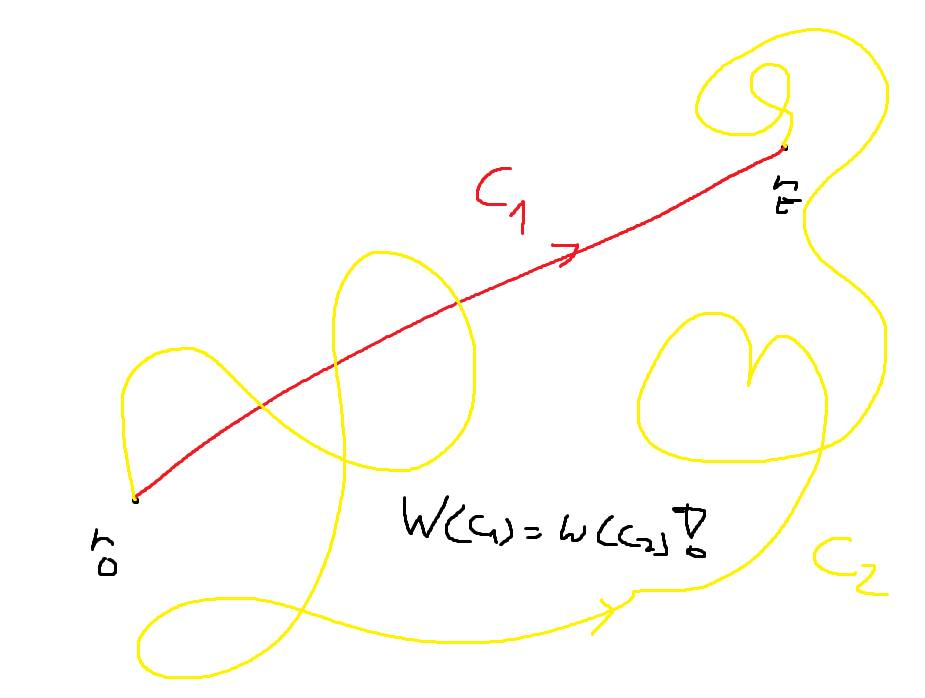 C₁
r_E
r_0
W(C₁) = W(C₂)!
C₂